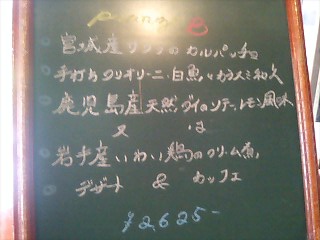 Pranzo B
宮城産サワラのカルパッチョ
手打ちタリオリーニ 白魚と
鹿児島産天然ダイのソテー レモン風味
又は
岩手産いわい鶏のクリーム煮
デザート & カッフェ
¥2625-